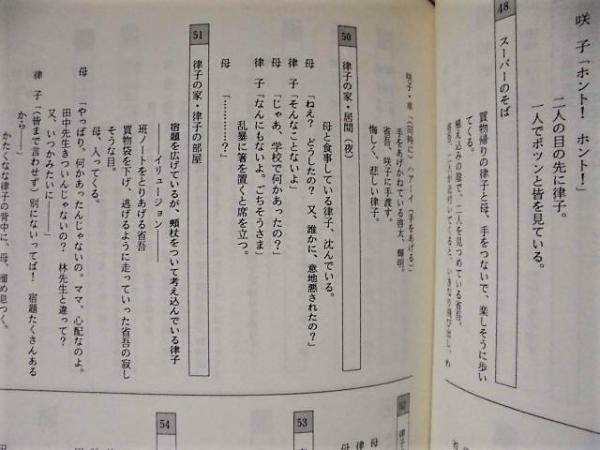 咲 子「ホント! ホント!」
二人の目の先に律子。
一人でポツンと皆を見ている。
48
スーパーのそば
買物帰りの律子と母、手をつないで、楽しそうに歩い
てくる。
植え込みの陰で、二人を見つめている省吾。
咲子・車「(同時に)ハァーイ(手をあげる)」
手をあげかねている啓太、輝明。
省吾、咲子に手渡す。
悔しく、悲しい律子。
50
律子の家・居間(夜)
母と食事している律子、沈んでいる。
母 「ねえ? どうしたの? 又、誰かに、意地悪されたの?」
律 子「そんなことないよ」
母 「じゃあ、学校で何かあったの?」
律 子「なんにもないよ。ごちそうさま」
乱暴に箸を置くと席を立つ。
母 「…………?」
51
律子の家・律子の部屋
宿題を広げているが、頬杖をついて考え込んでいる律子
――イリュージョン――
班ノートをとりあげる省吾
買物袋を下げ、逃げるように走っていった省吾の寂し
そうな目。
母、入ってくる。
母 「やっぱり、何かあったんじゃないの。ママ、心配なのよ。
田中先生きついんじゃないの? 林先生と違って?
又、いつかみたいに――」
律 子「(皆まで言わせず)別にないってば! 宿題たくさんある
から――」
かたくなな律子の背中に、母、溜め息つく。
52
53
54